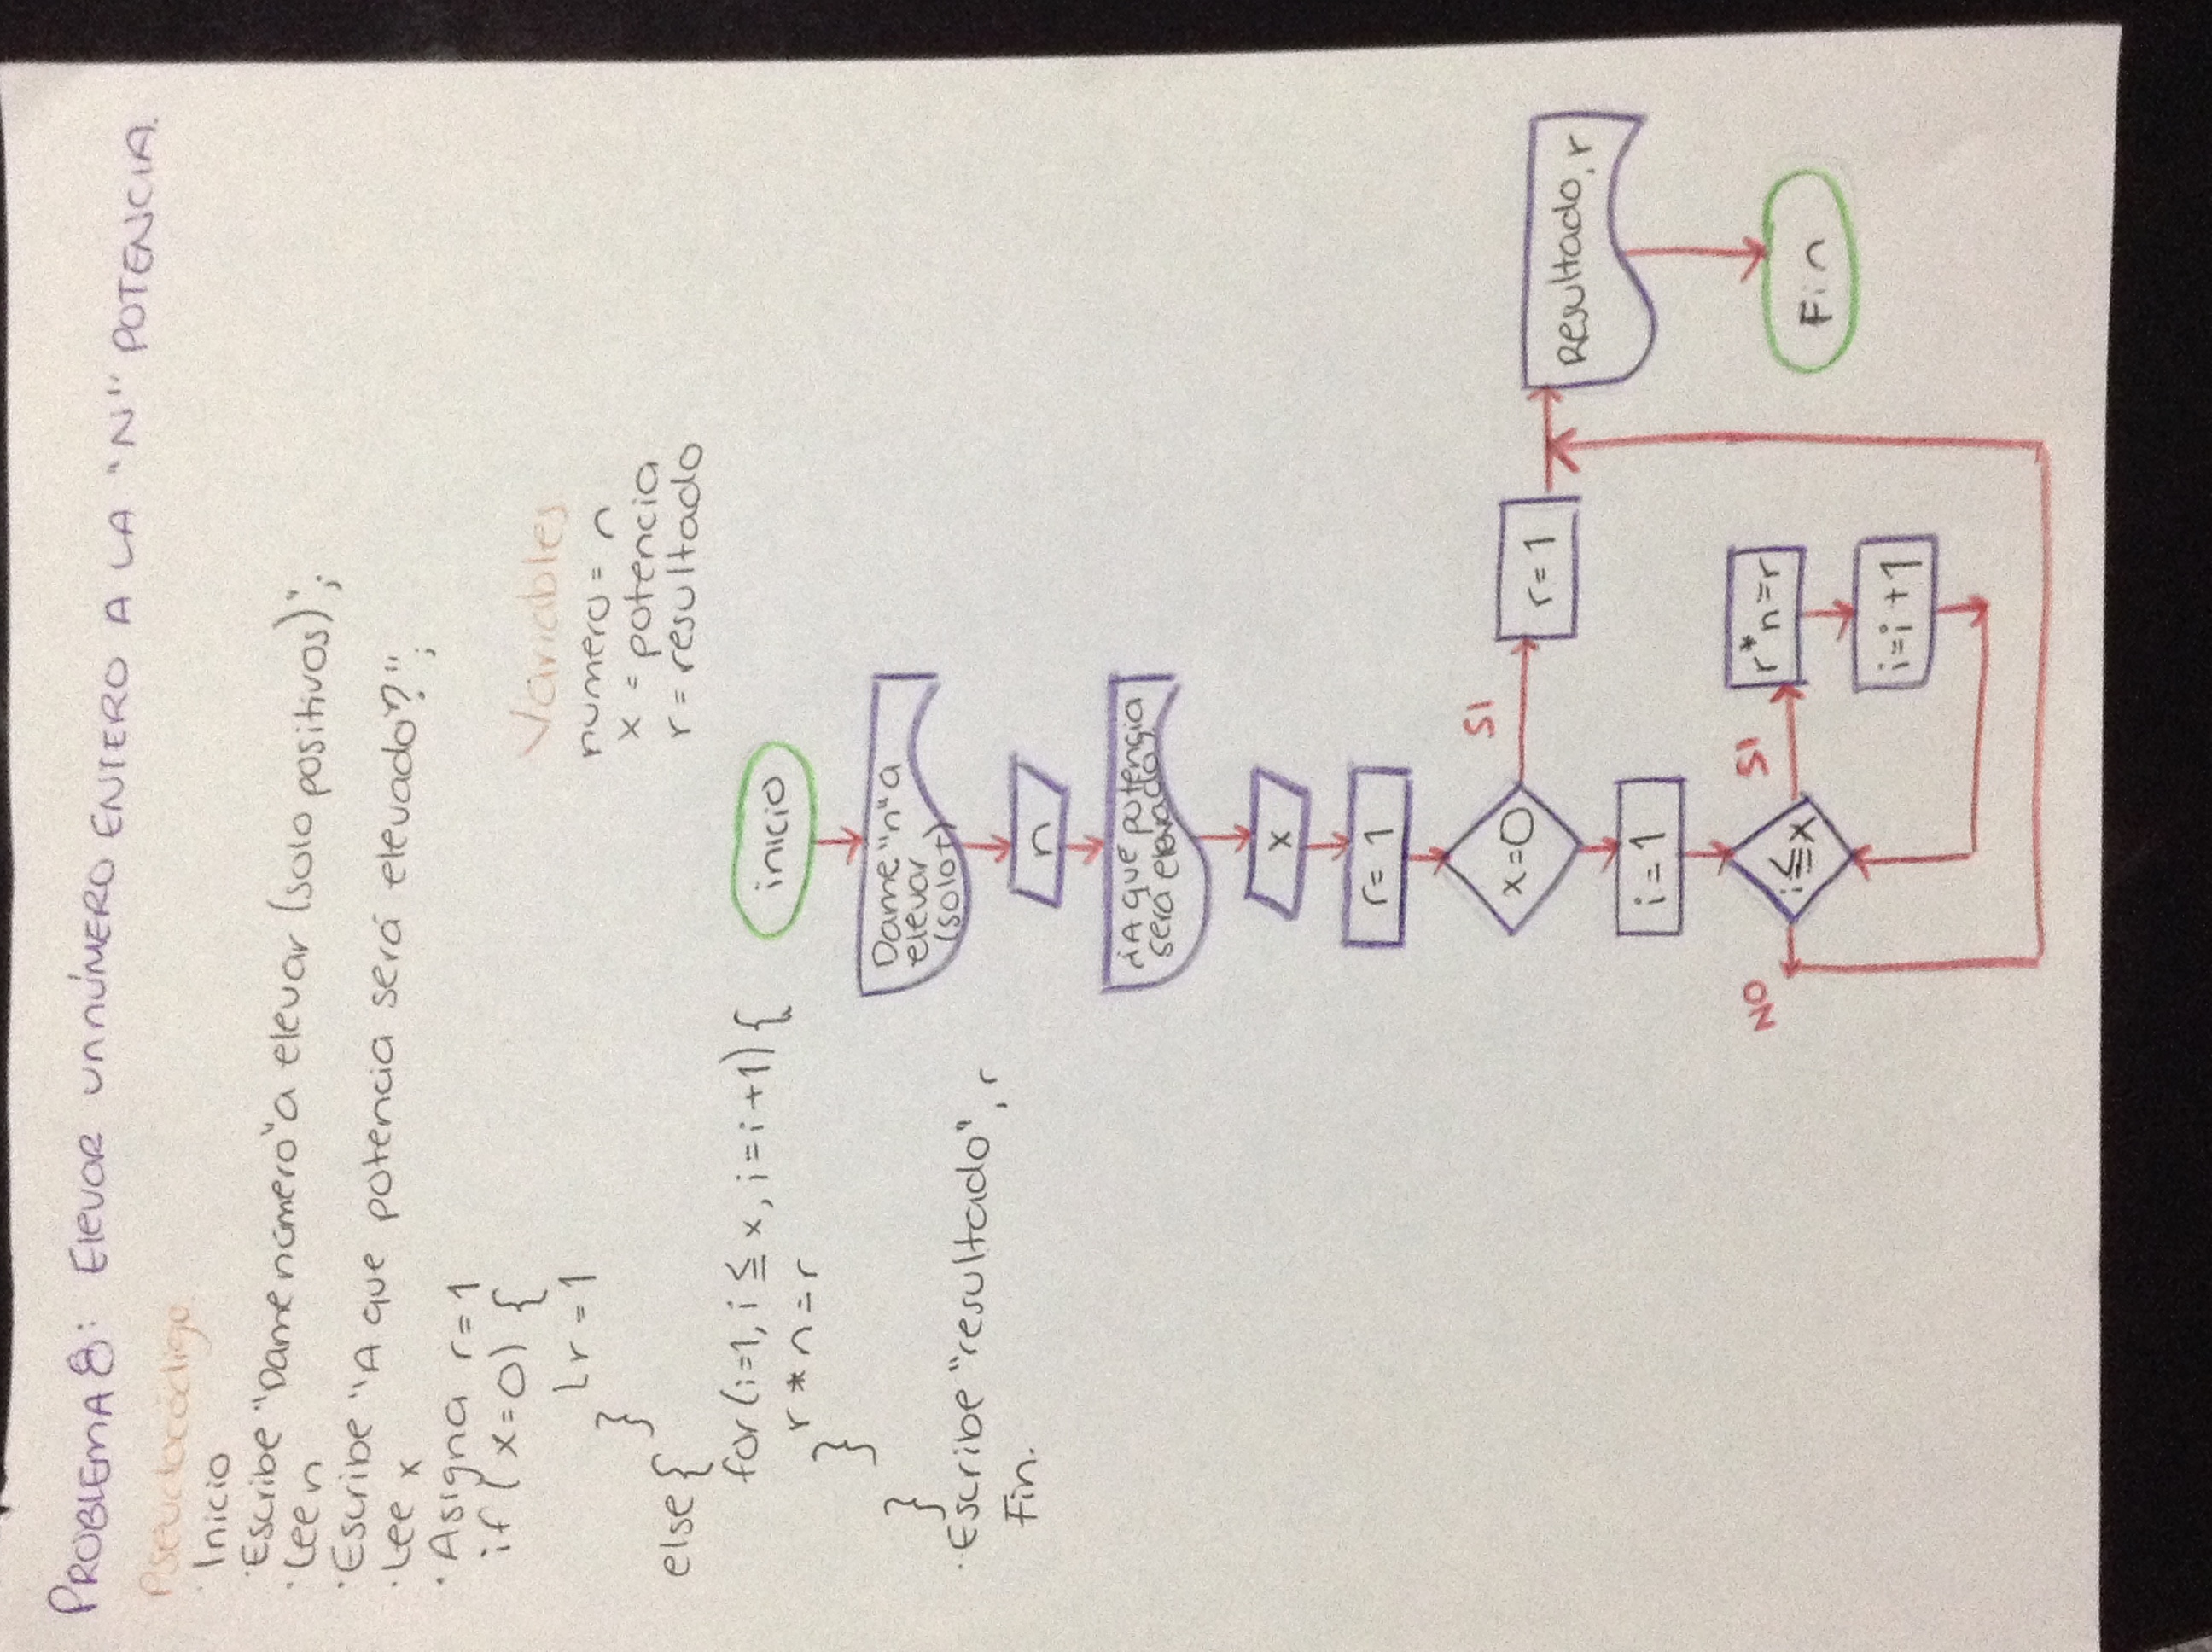 PROBLEMA 8: Elevar un número entero a la "N" potencia.
Pseudocódigo
· Inicio
· Escribe "Dame número" a elevar (solo positivos)";
· Lee n
· Escribe "A que potencia será elevado?";
· Lee x
· Asigna r = 1
if (x=0) {
r = 1
}
else {
for (i=1, i ≦ x, i=i+1) {
r * n = r
}
}
· Escribe "resultado", r
Fin.
Variables
numero = n
x = potencia
r = resultado
inicio
Dame "n" a
elevar
(solo +)
n
¿A que potencia
será elevado?
x
r = 1
x=0
SI
r = 1
Resultado, r
i = 1
NO
i≦x
SI
r*n=r
i=i+1
Fin